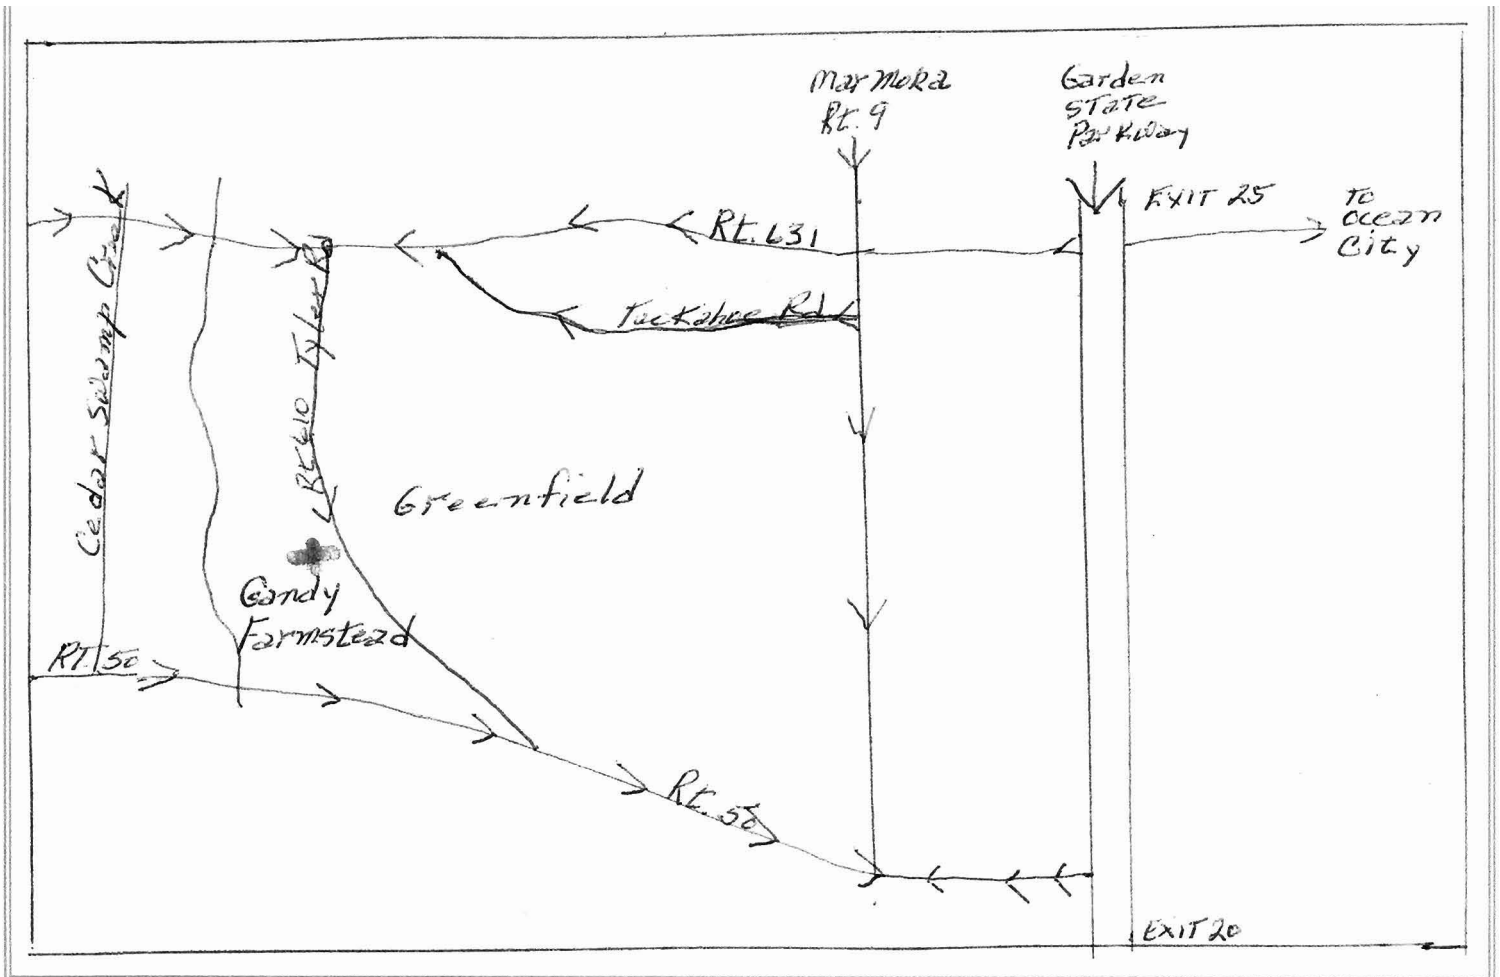 Marmora
Rt. 9
Garden
State
Parkway
EXIT 25
To
Ocean
City
Rt. 631
Tuckahoe Rd
Cedar Swamp Creek
Rt 610 Tyler Rd
Greenfield
Gandy
Farmstead
RT. 50
Rt. 50
EXIT 20